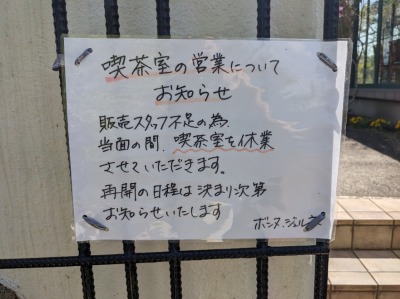 喫茶室の営業について
お知らせ
販売スタッフ不足の為、
当面の間、喫茶室を休業
させていただきます。
再開の日程は決まり次第
お知らせいたします
ボンヌ・ジュルネ